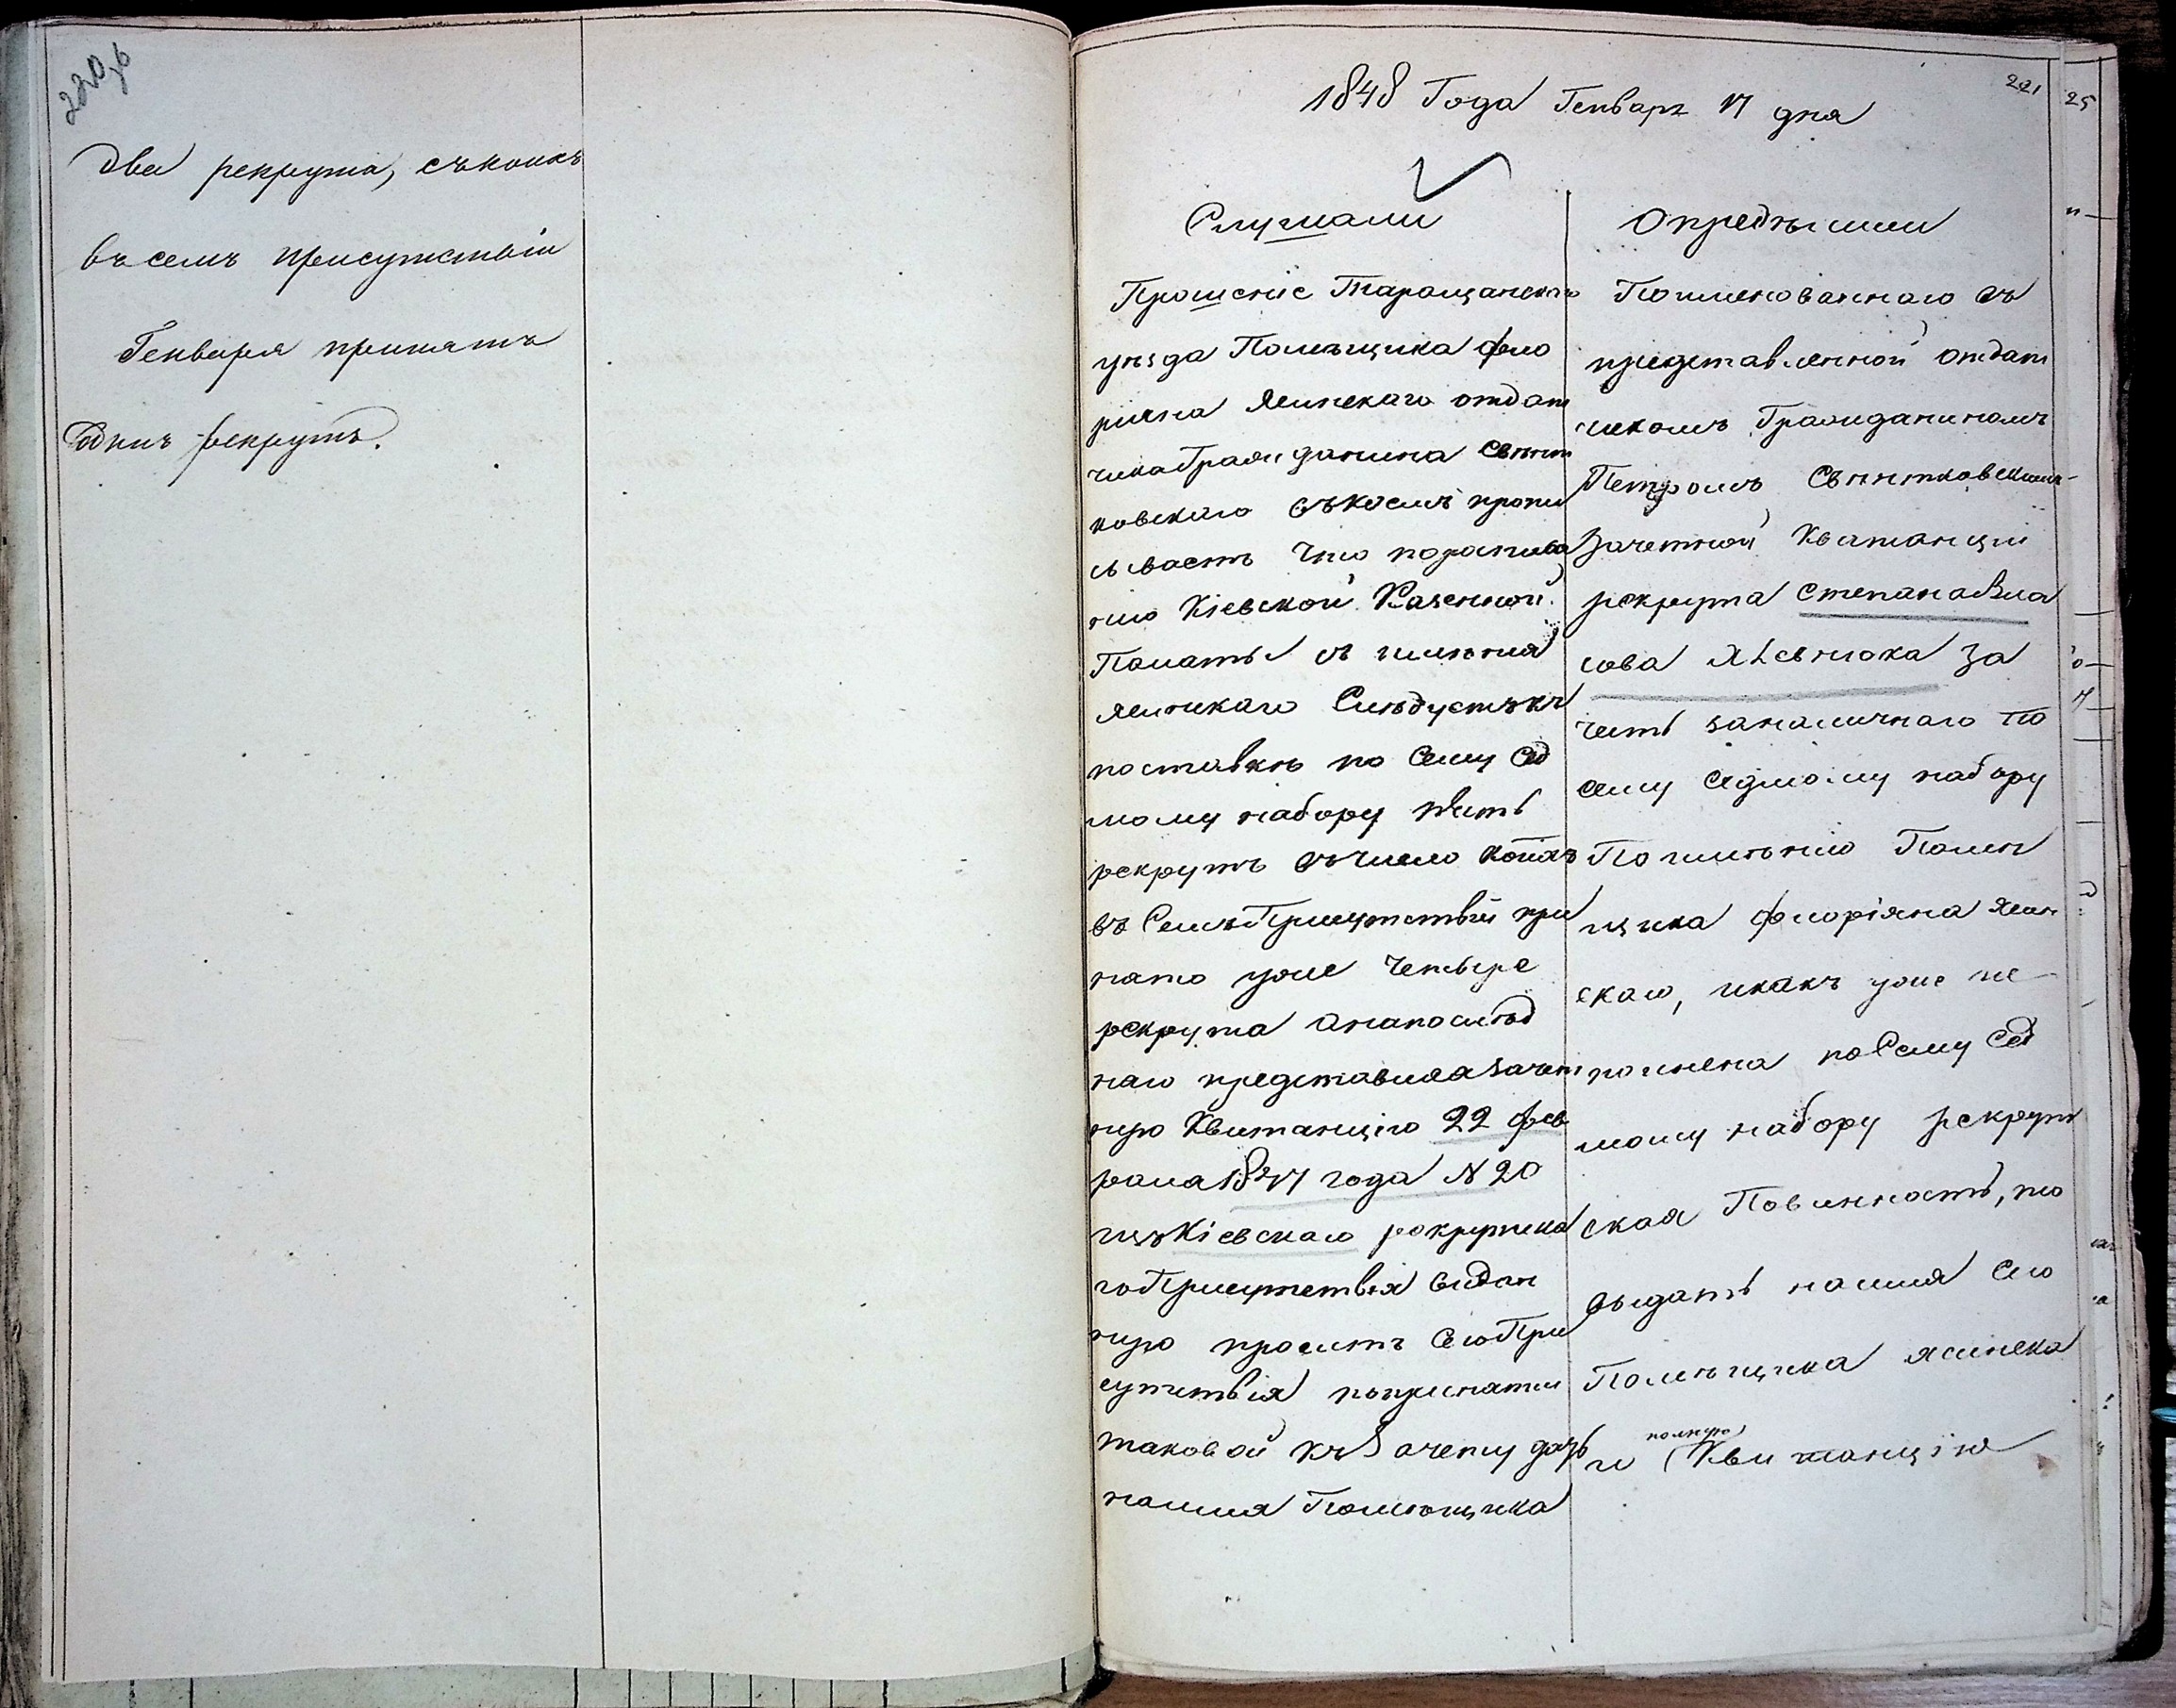 220 об
два рекрута, съ коихъ
въ семъ присутствіи
Генваря принятъ
Одинъ рекрутъ.
221
25
1848 Года Генваря 17 дня
Слушали
Прошеніе Таращанскаго
уѣзда Помѣщика Фло
ріяна Ясинскаго отдат
чика Гражданина Свент
ковскаго въ коемъ пропи
сываетъ что по расписа
нію Кіевской Казенной
Полаты съ имѣнія
Ясинскаго Слѣдуетъ къ
поставкѣ по Сему Сед
мому набору пять
рекрутъ въ число коихъ
въ Семъ Присутствіи при
нято уже Четыре
рекрута а на послѣд
наго представляя зачет
ную Квитанцію 22 фев
раля 1847 года N 20
изъ Кіевскаго рекрутска
го Присутствія выдан
ную проситъ Сего При
сутствія по принятіи
таковой къ Зачету дать
на имя Помѣщика
Опредѣлили
Поименованнаго въ
представленной отдат
чикомъ Гражданиномъ
Петромъ Свентковскимъ
Зачетной Квитанціи
рекрута Степана Вла
сова Явенюка За
честь за наличнаго по
Сему Седмому набору
По имѣнію Помѣ
щика Флоріяна Ясин
скаго, и какъ уже ис
полнена по Сему Сед
мому набору рекрут
ская Повинность, то
выдать на имя Сего
Помѣщика Ясинска
полную
го Квитанцію